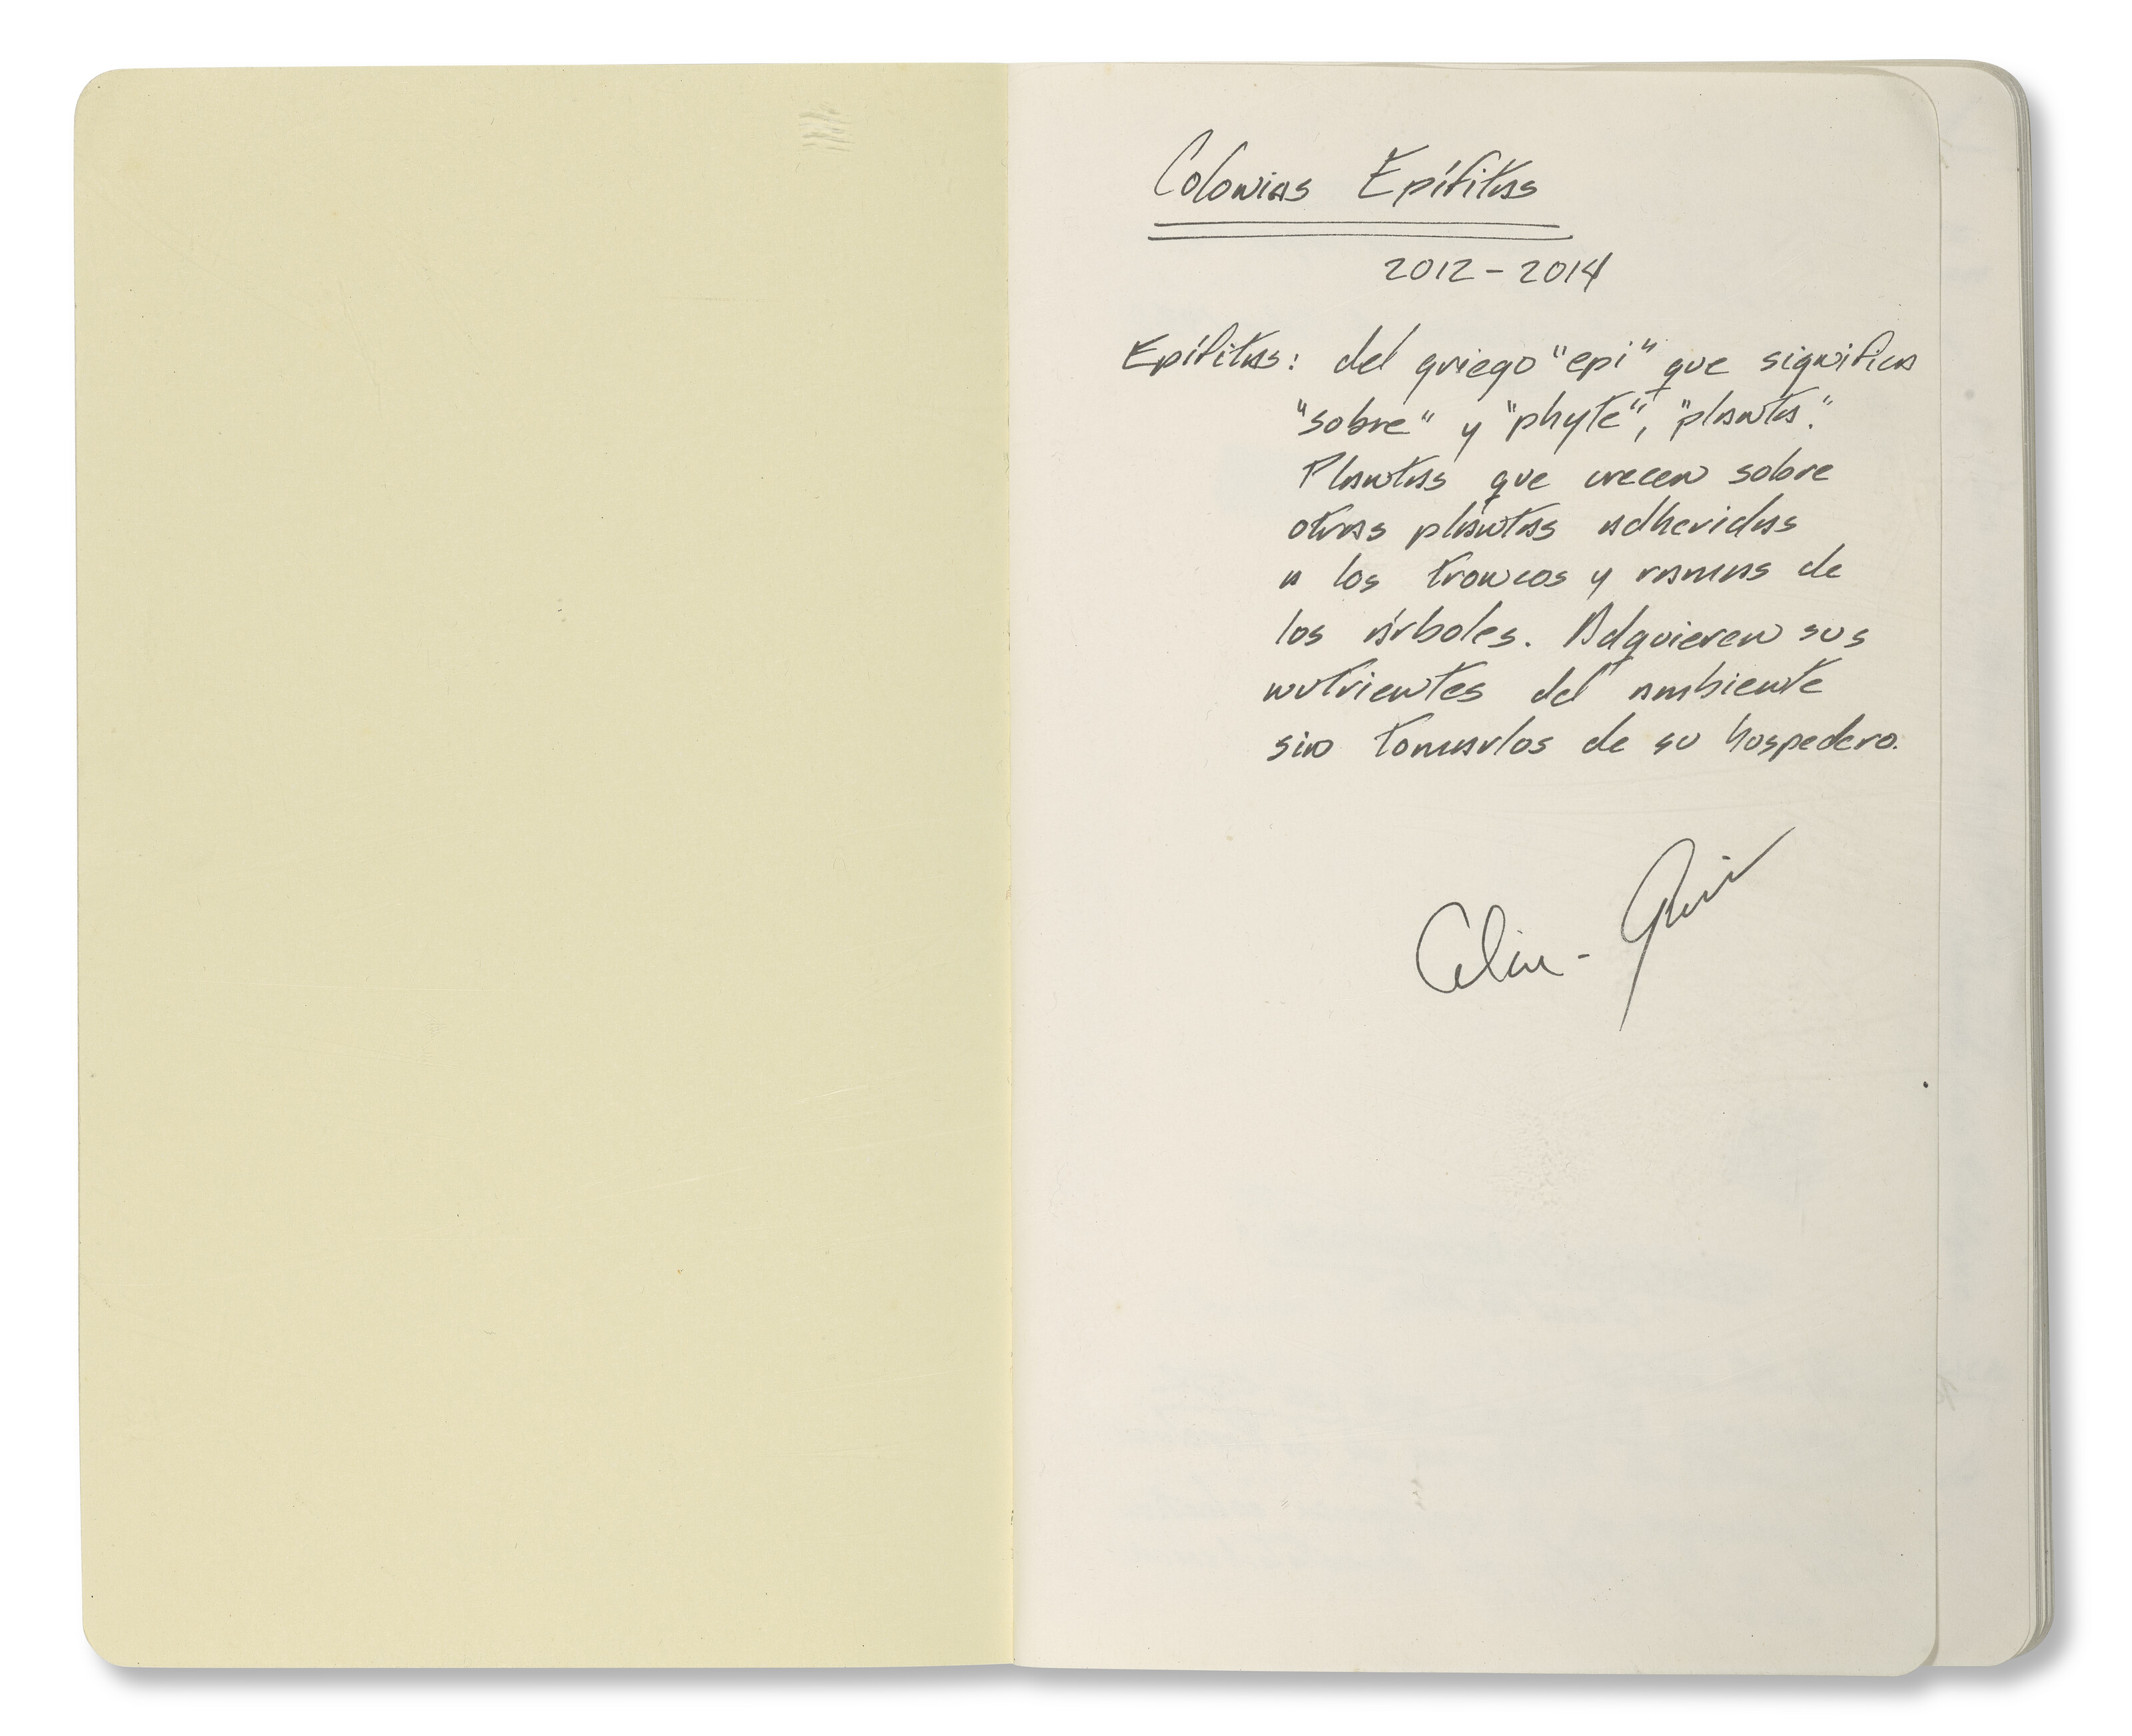 Colonias Epífitas
2012 - 2014
Epífitas: del griego "epi" que significa
"sobre" y "phyte", "planta."
Plantas que crecen sobre
otras plantas adheridas
a los troncos y ramas de
los árboles. Adquieren sus
nutrientes del ambiente
sin tomarlos de su hospedero.